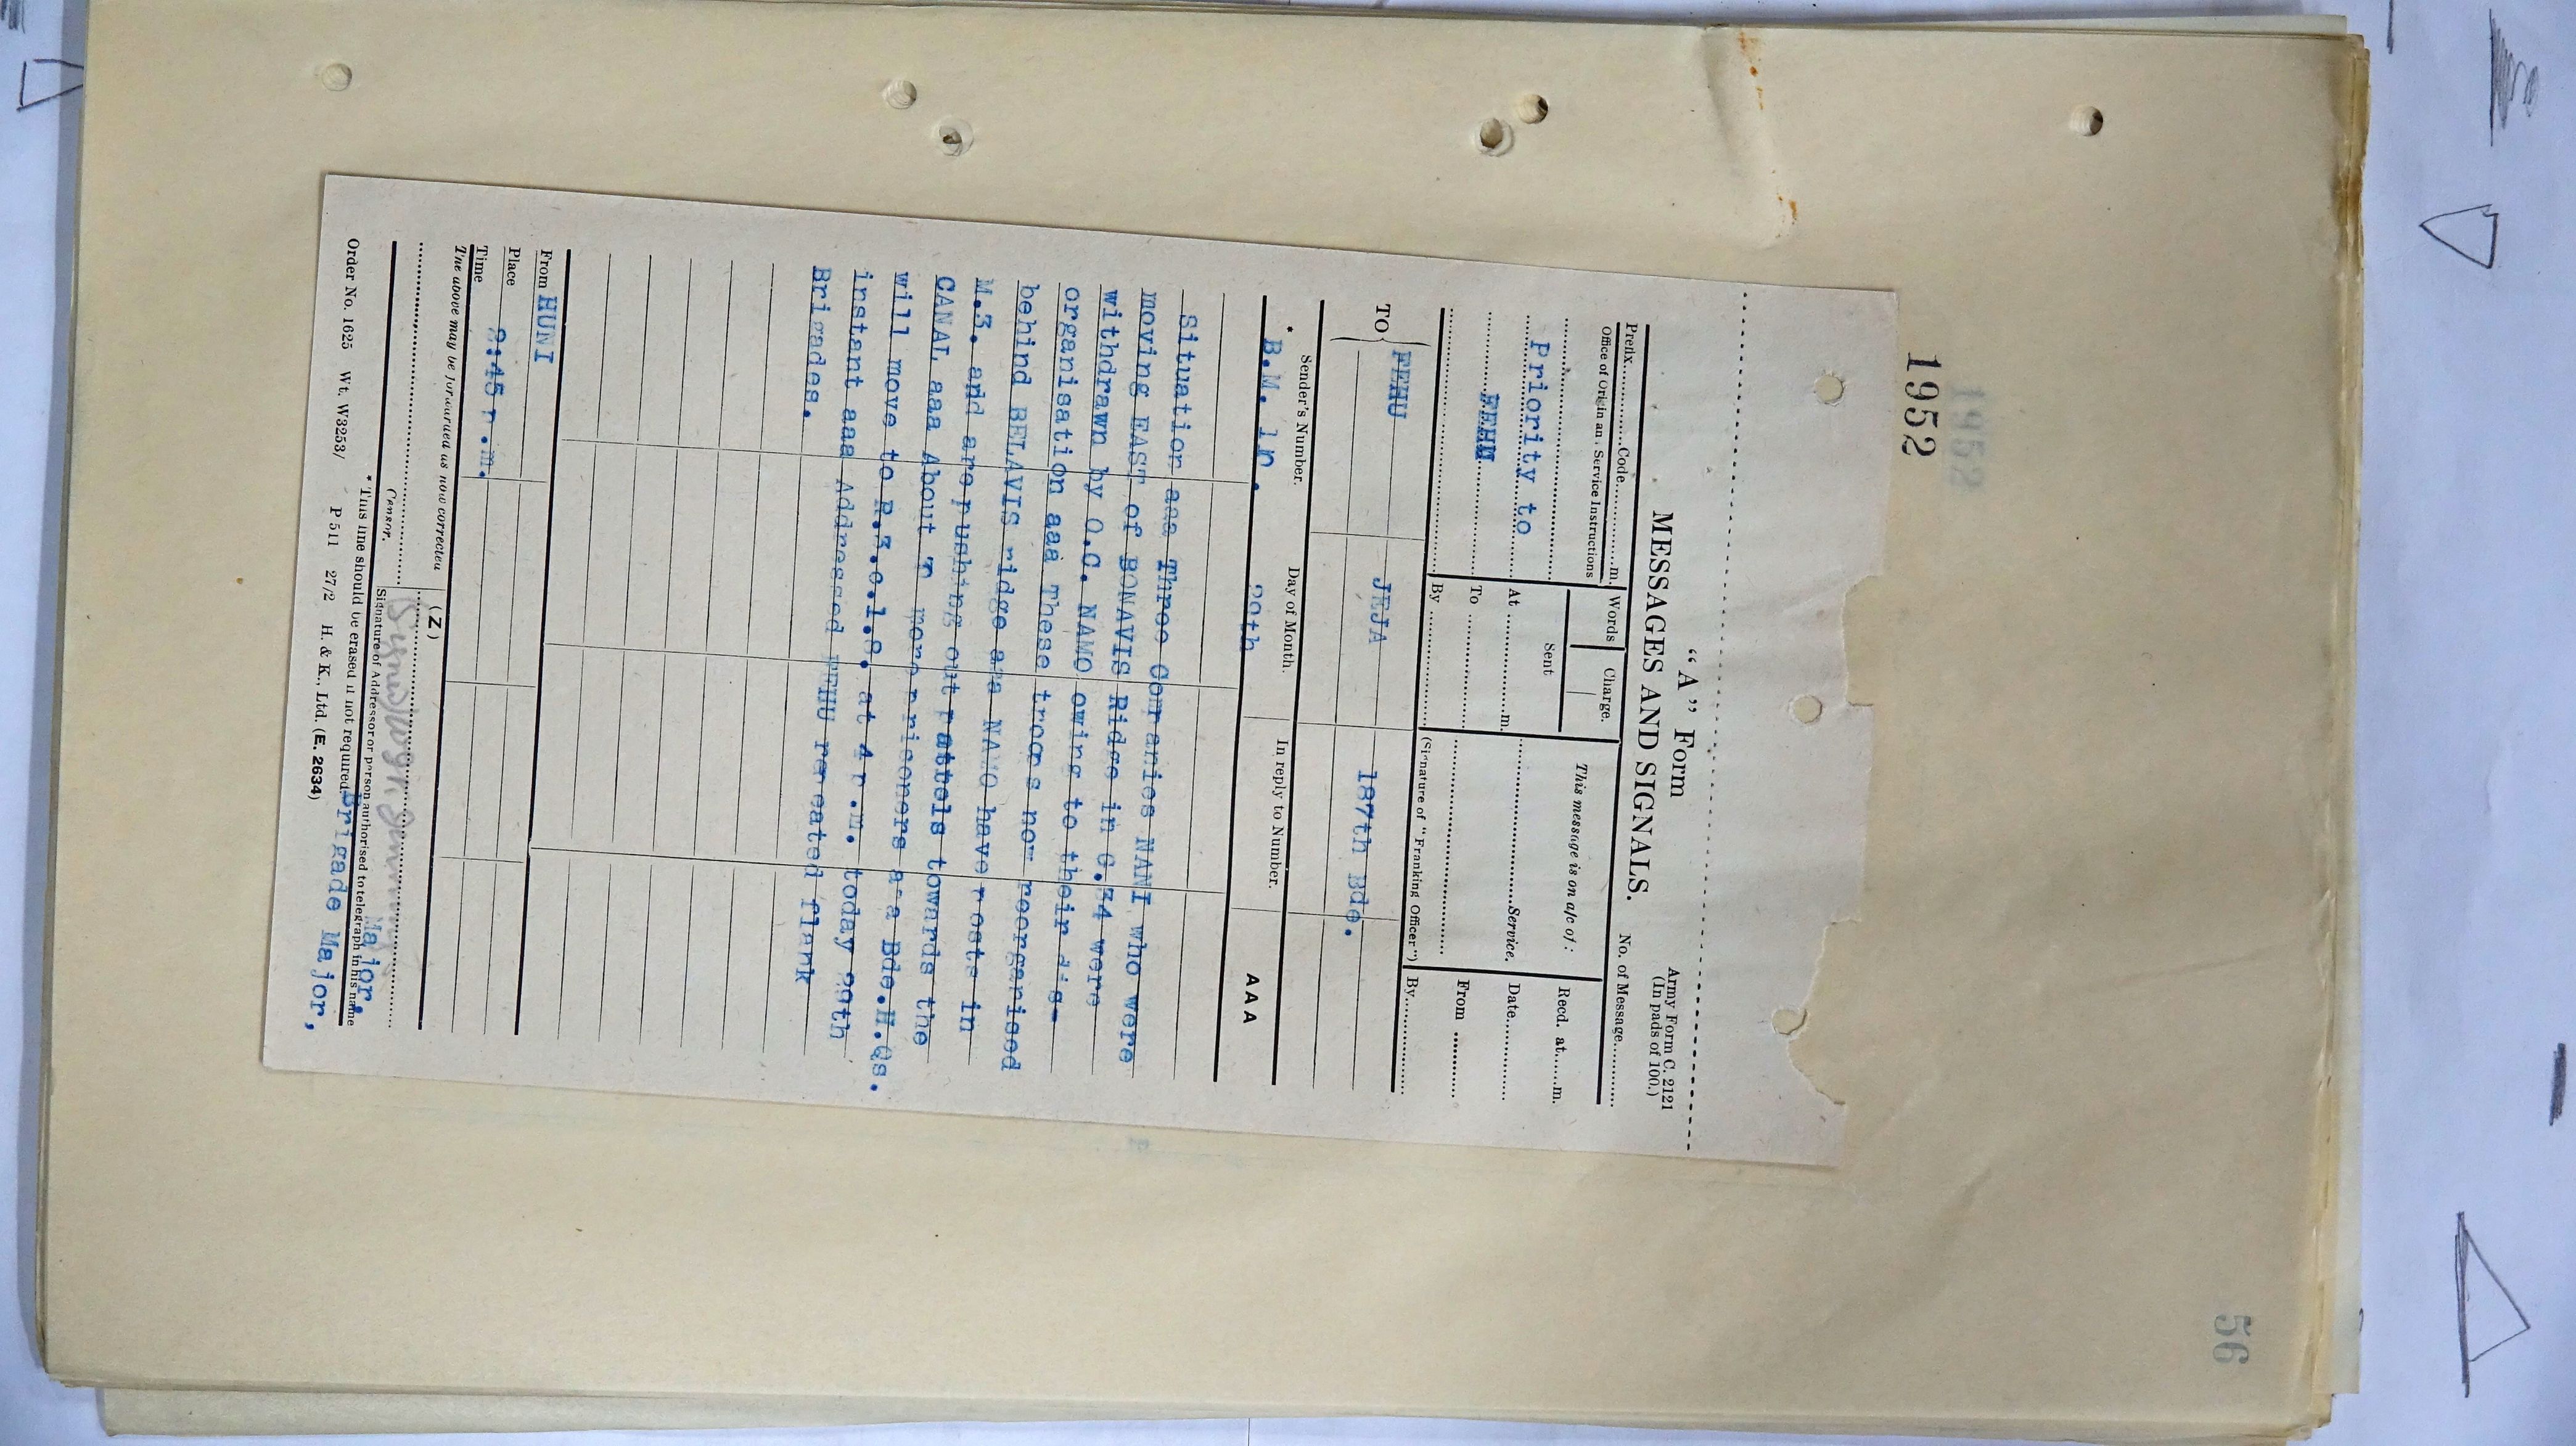 1952
1952
56
"A" Form
Army Form C. 2121
(In pads of 100.)
MESSAGES AND SIGNALS.
No. of Message
Prefix Code m.
Words Charge.
This message is on a/c of:
Recd. at m.
Office of Origin and Service Instructions
Sent
Priority to
At m.
Service.
Date
FEHU
To
From
By
(Signature of "Franking Officer")
By
TO
FEHU JEJA 187th Bde.
Sender's Number. Day of Month. In reply to Number.
AAA
* B.M. 20th
Situation aaa Three Companies NANI who were
moving EAST of BONAVIS Ridge in G.34 were
withdrawn by O.C. NAMO owing to their dis-
organisation aaa These troops now reorganised
behind BELAVIS ridge aaa NAMO have posts in
M.3. and are pushing out pattols towards the
CANAL aaa About more prisoners aaa Bde.H.Qs.
will move to R.3.c.1.8. at 4 p.m. today 20th
instant aaa Addressed FEHU repeated flank
Brigades.
From HUNI
Place
Time 2:45 p.m.
The above may be forwarded as now corrected
(Z)
(Signed)
Major.
Censor.
Signature of Addressor or person authorised to telegraph in his name
* This line should be erased if not required.
Brigade Major,
Order No. 1625 Wt. W3253/ P 511 27/2 H. & K., Ltd. (E. 2634)